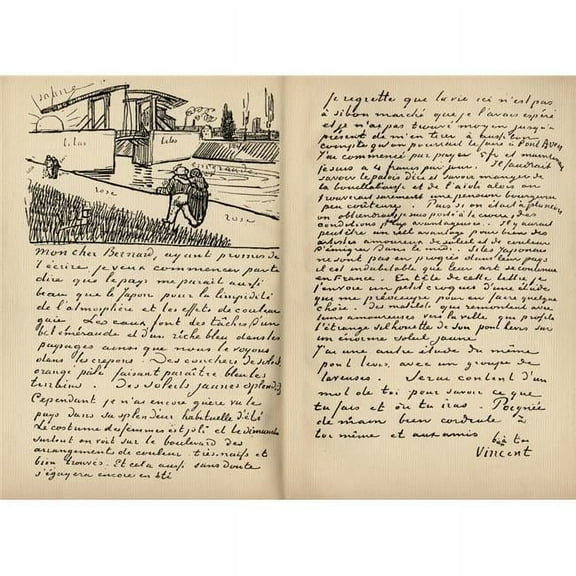 jaune
Lilas
Lilas
rose
rose
Mon cher Bernard, ayant promis de
t'écrire je veux commencer par te
dire que le pays me parait aussi
beau que le Japon pour la limpidité
de l'atmosphère et les effets de couleur
gaie. Les eaux font des tâches d'un
bel émeraude et d'un riche bleu dans les
paysages ainsi que nous le voyons
dans les crepons. Des couchers de soleil
orange pâle faisant paraître bleu les
terrains. Des soleils jaunes splendides
Cependant je n'ai encore guère vu le
pays dans sa splendeur habituelle d'été
Le costume des femmes est joli et le dimanche
surtout on voit sur le boulevard des
arrangements de couleur très naïfs et
bien trouvés. Et cela aussi sans doute
s'égayera encore en été
Je regrette que la vie ici n'est pas
à si bon marché que je l'avais espéré
et je n'ai pas trouvé moyen jusqu'à
présent de m'en tirer à aussi bon
compte qu'on pourrait le faire à Pont Aven
J'ai commencé par payer 5 fr et maintenant
je suis à 4 francs par jour. Il faudrait
savoir le patois d'ici et savoir manger de
la bouillabaisse et de l'aïoli alors on
trouverait surement une pension bourgeoise
peu coûteuse. Puis si on était à plusieurs
on obtiendrait je suis porté à le croire, des
conditions plus avantageuses. Il y aurait
peut être un réel avantage pour bien des
artistes amoureux de soleil et de couleur
d'émigrer dans le midi. Si les Japonais
ne sont pas en progrès dans leur pays
il est indubitable que leur art se continue
en France. En tête de cette lettre je
t'envoie un petit croquis d'une étude
qui me préoccupe pour en faire quelque
chose. Des matelots qui remontent avec
leurs amoureuses vers la ville qui profile
l'étrange silhouette de son pont levis sur
un énorme soleil jaune
J'ai une autre étude du même
pont levis, avec un groupe de
laveuses. Serai content d'un
mot de toi pour savoir ce que
tu fais et où tu iras. Poignée
de main bien cordiale à
toi même et aux amis
b. à toi
Vincent